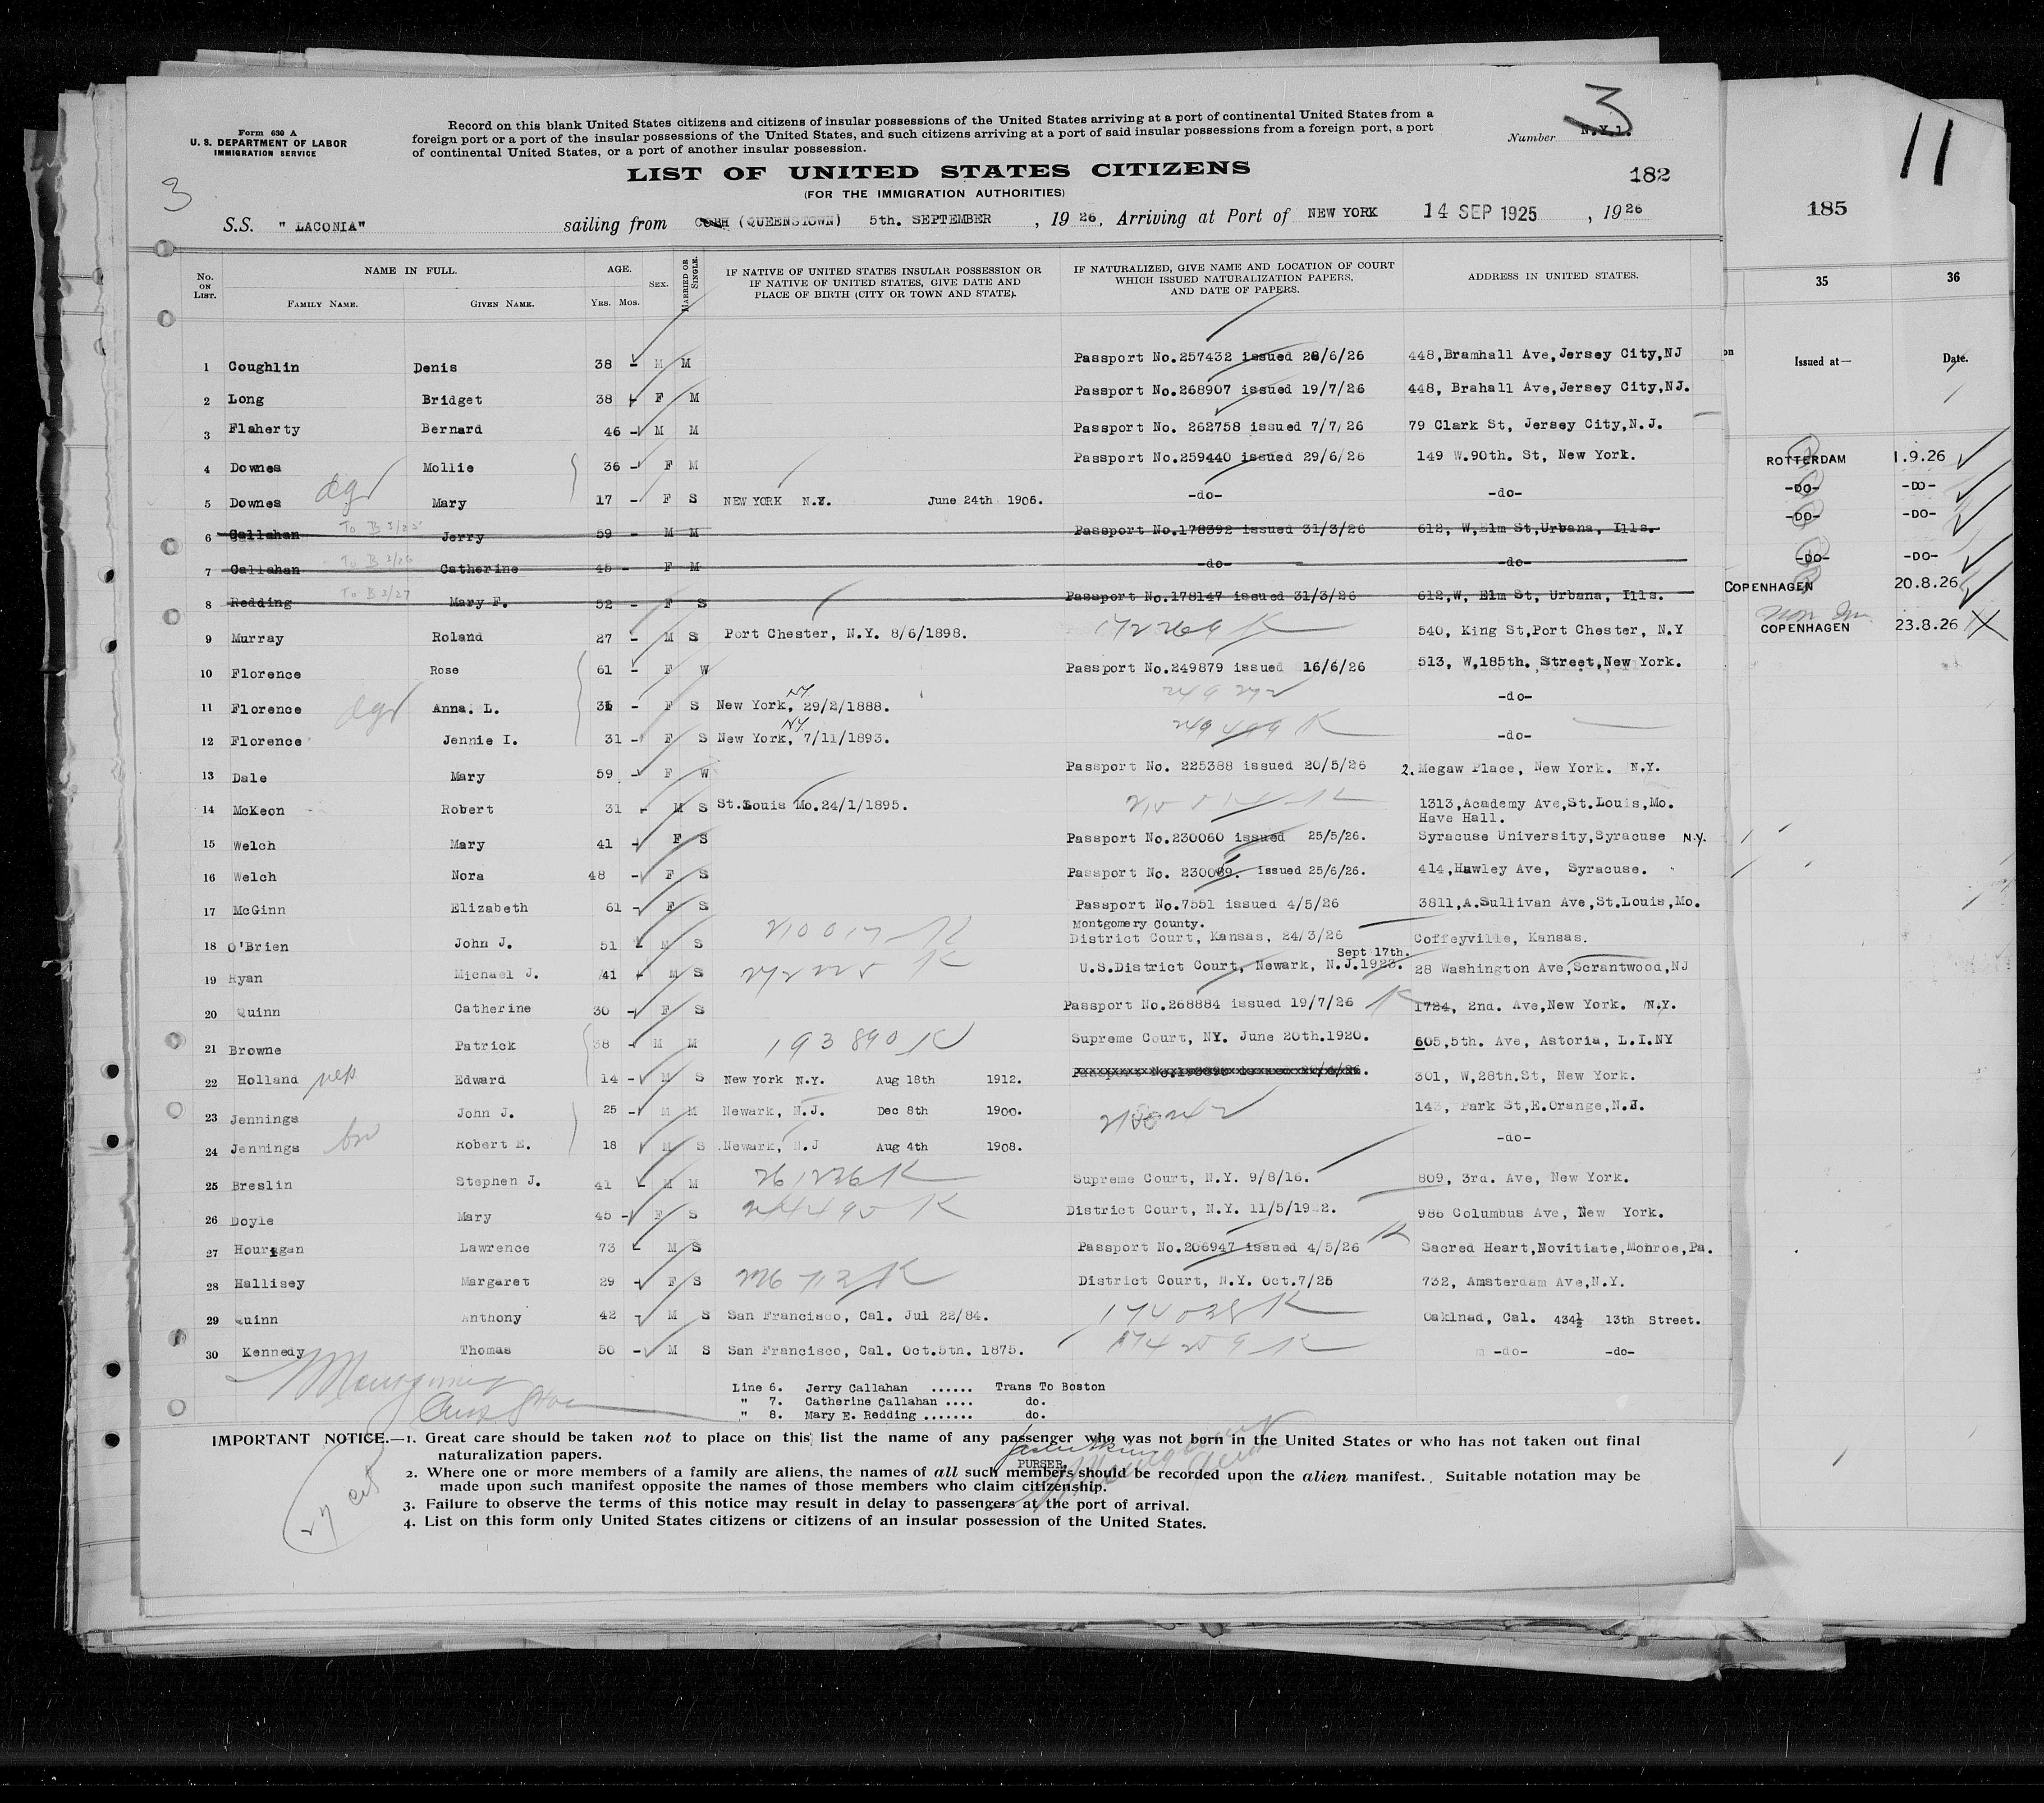 3
Form 630 A
U. S. DEPARTMENT OF LABOR
IMMIGRATION SERVICE
Record on this blank United States citizens and citizens of insular possessions of the United States arriving at a port of continental United States from a
foreign port or a port of the insular possessions of the United States, and such citizens arriving at a port of said insular possessions from a foreign port, a port
of continental United States, or a port of another insular possession.
Number N.Y.1.
LIST OF UNITED STATES CITIZENS
(FOR THE IMMIGRATION AUTHORITIES)
182
3
S.S. " LACONIA" sailing from COBH (QUEENSTOWN) 5th. SEPTEMBER , 19 26, Arriving at Port of NEW YORK 14 SEP 1925 , 19 26
No. ON LIST. NAME IN FULL. FAMILY NAME. GIVEN NAME. AGE. YRS. MOS. SEX. MARRIED OR SINGLE. IF NATIVE OF UNITED STATES INSULAR POSSESSION OR IF NATIVE OF UNITED STATES, GIVE DATE AND PLACE OF BIRTH (CITY OR TOWN AND STATE). IF NATURALIZED, GIVE NAME AND LOCATION OF COURT WHICH ISSUED NATURALIZATION PAPERS, AND DATE OF PAPERS. ADDRESS IN UNITED STATES.
1 Coughlin Denis 38 - M M Passport No.257432 issued 28/6/26 448,Bramhall Ave,Jersey City,NJ
2 Long Bridget 38 - F M Passport No.268907 issued 19/7/26 448, Brahall Ave,Jersey City,NJ.
3 Flaherty Bernard 46 - M M Passport No. 262758 issued 7/7/26 79 Clark St, Jersey City,N.J.
4 Downes Mollie 36 - F M Passport No.259440 issued 29/6/26 149 W.90th. St, New York.
5 Downes dgr Mary 17 - F S NEW YORK N.Y. June 24th 1906. -do- -do-
6 Callahan Jerry 59 - M M Passport No.178392 issued 31/3/26 612, W,Elm St,Urbana, Ills.
7 Callahan To B 3/26 Catherine 45 - F M -do- -do-
8 Redding To B 3/27 Mary F. 52 - F S Passport No.178147 issued 31/3/26 612,W, Elm St, Urbana, Ills.
9 Murray Roland 27 - M S Port Chester, N.Y. 8/6/1898. 172269 K 540, King St,Port Chester, N.Y
10 Florence Rose 61 - F W Passport No.249879 issued 16/6/26 513, W,185th. Street,New York.
11 Florence dgr Anna. L. - F S New York, NY. 29/2/1888. -do-
12 Florence Jennie I. 31 - F S New York, NY. 7/11/1893. 249499 K -do-
13 Dale Mary 59 - F W Passport No. 225388 issued 20/5/26 2. Megaw Place, New York. N.Y.
14 McKeon Robert 31 - M S St.Louis Mo.24/1/1895. 1313,Academy Ave,St.Louis,Mo.
Have Hall.
15 Welch Mary 41 - F S Passport No.230060 issued 25/5/26. Syracuse University,Syracuse N.Y.
16 Welch Nora 48 - F S Passport No. issued 25/6/26. 414,Hawley Ave, Syracuse.
17 McGinn Elizabeth 61 - F S Passport No.7551 issued 4/5/26 3811,A.Sullivan Ave,St.Louis,Mo.
Montgomery County.
18 O'Brien John J. 51 - M S 210017 K District Court, Kansas, 24/3/26 Coffeyville, Kansas.
Sept 17th.
19 Ryan Michael J. 41 - M S 272225 K U.S.District Court, Newark, N.J.1923. 28 Washington Ave,Scrantwood,NJ
20 Quinn Catherine 30 - F S Passport No.268884 issued 19/7/26 K 1724, 2nd. Ave,New York. N.Y.
21 Browne Patrick 38 - M M 193890 K Supreme Court, NY. June 20th.1920. 605,5th. Ave, Astoria, L.I.NY
22 Holland nep Edward 14 - M S New York N.Y. Aug 18th 1912. 301, W,28th.St, New York.
23 Jennings John J. 25 - M M Newark, N.J. Dec 8th 1900. 143, Park St,E.Orange,N.J.
24 Jennings bro Robert E. 18 M S Newark, N.J Aug 4th 1908. -do-
25 Breslin Stephen J. 41 - M M 261236 K Supreme Court, N.Y. 9/8/16. 809, 3rd. Ave, New York.
26 Doyle Mary 45 - F S 244495 K District Court, N.Y. 11/5/1922. 986 Columbus Ave, New York.
27 Hourigan Lawrence 73 - M S Passport No.206947 issued 4/5/26 K Sacred Heart,Novitiate,Monroe,Pa.
28 Hallisey Margaret 29 - F S 226713 K District Court, N.Y. Oct.7/25 732, Amsterdam Ave,N.Y.
29 Quinn Anthony 42 - M S San Francisco, Cal. Jul 22/84. 174038 K Oaklnad, Cal. 434½ 13th Street.
30 Kennedy Thomas 50 - M S San Francisco, Cal. Oct.5th. 1875. 174259 K -do- -do-
Line 6. Jerry Callahan ...... Trans To Boston
" 7. Catherine Callahan .... do.
" 8. Mary E. Redding ....... do.
IMPORTANT NOTICE.—1. Great care should be taken not to place on this list the name of any passenger who was not born in the United States or who has not taken out final
naturalization papers.
PURSER.
2. Where one or more members of a family are aliens, the names of all such members should be recorded upon the alien manifest. Suitable notation may be
made upon such manifest opposite the names of those members who claim citizenship.
3. Failure to observe the terms of this notice may result in delay to passengers at the port of arrival.
4. List on this form only United States citizens or citizens of an insular possession of the United States.
27 cit
11
185
35 36
on Issued at— Date.
ROTTERDAM 1.9.26
-DO- -DO-
-DO- -DO-
-DO- -DO-
COPENHAGEN 20.8.26
COPENHAGEN 23.8.26